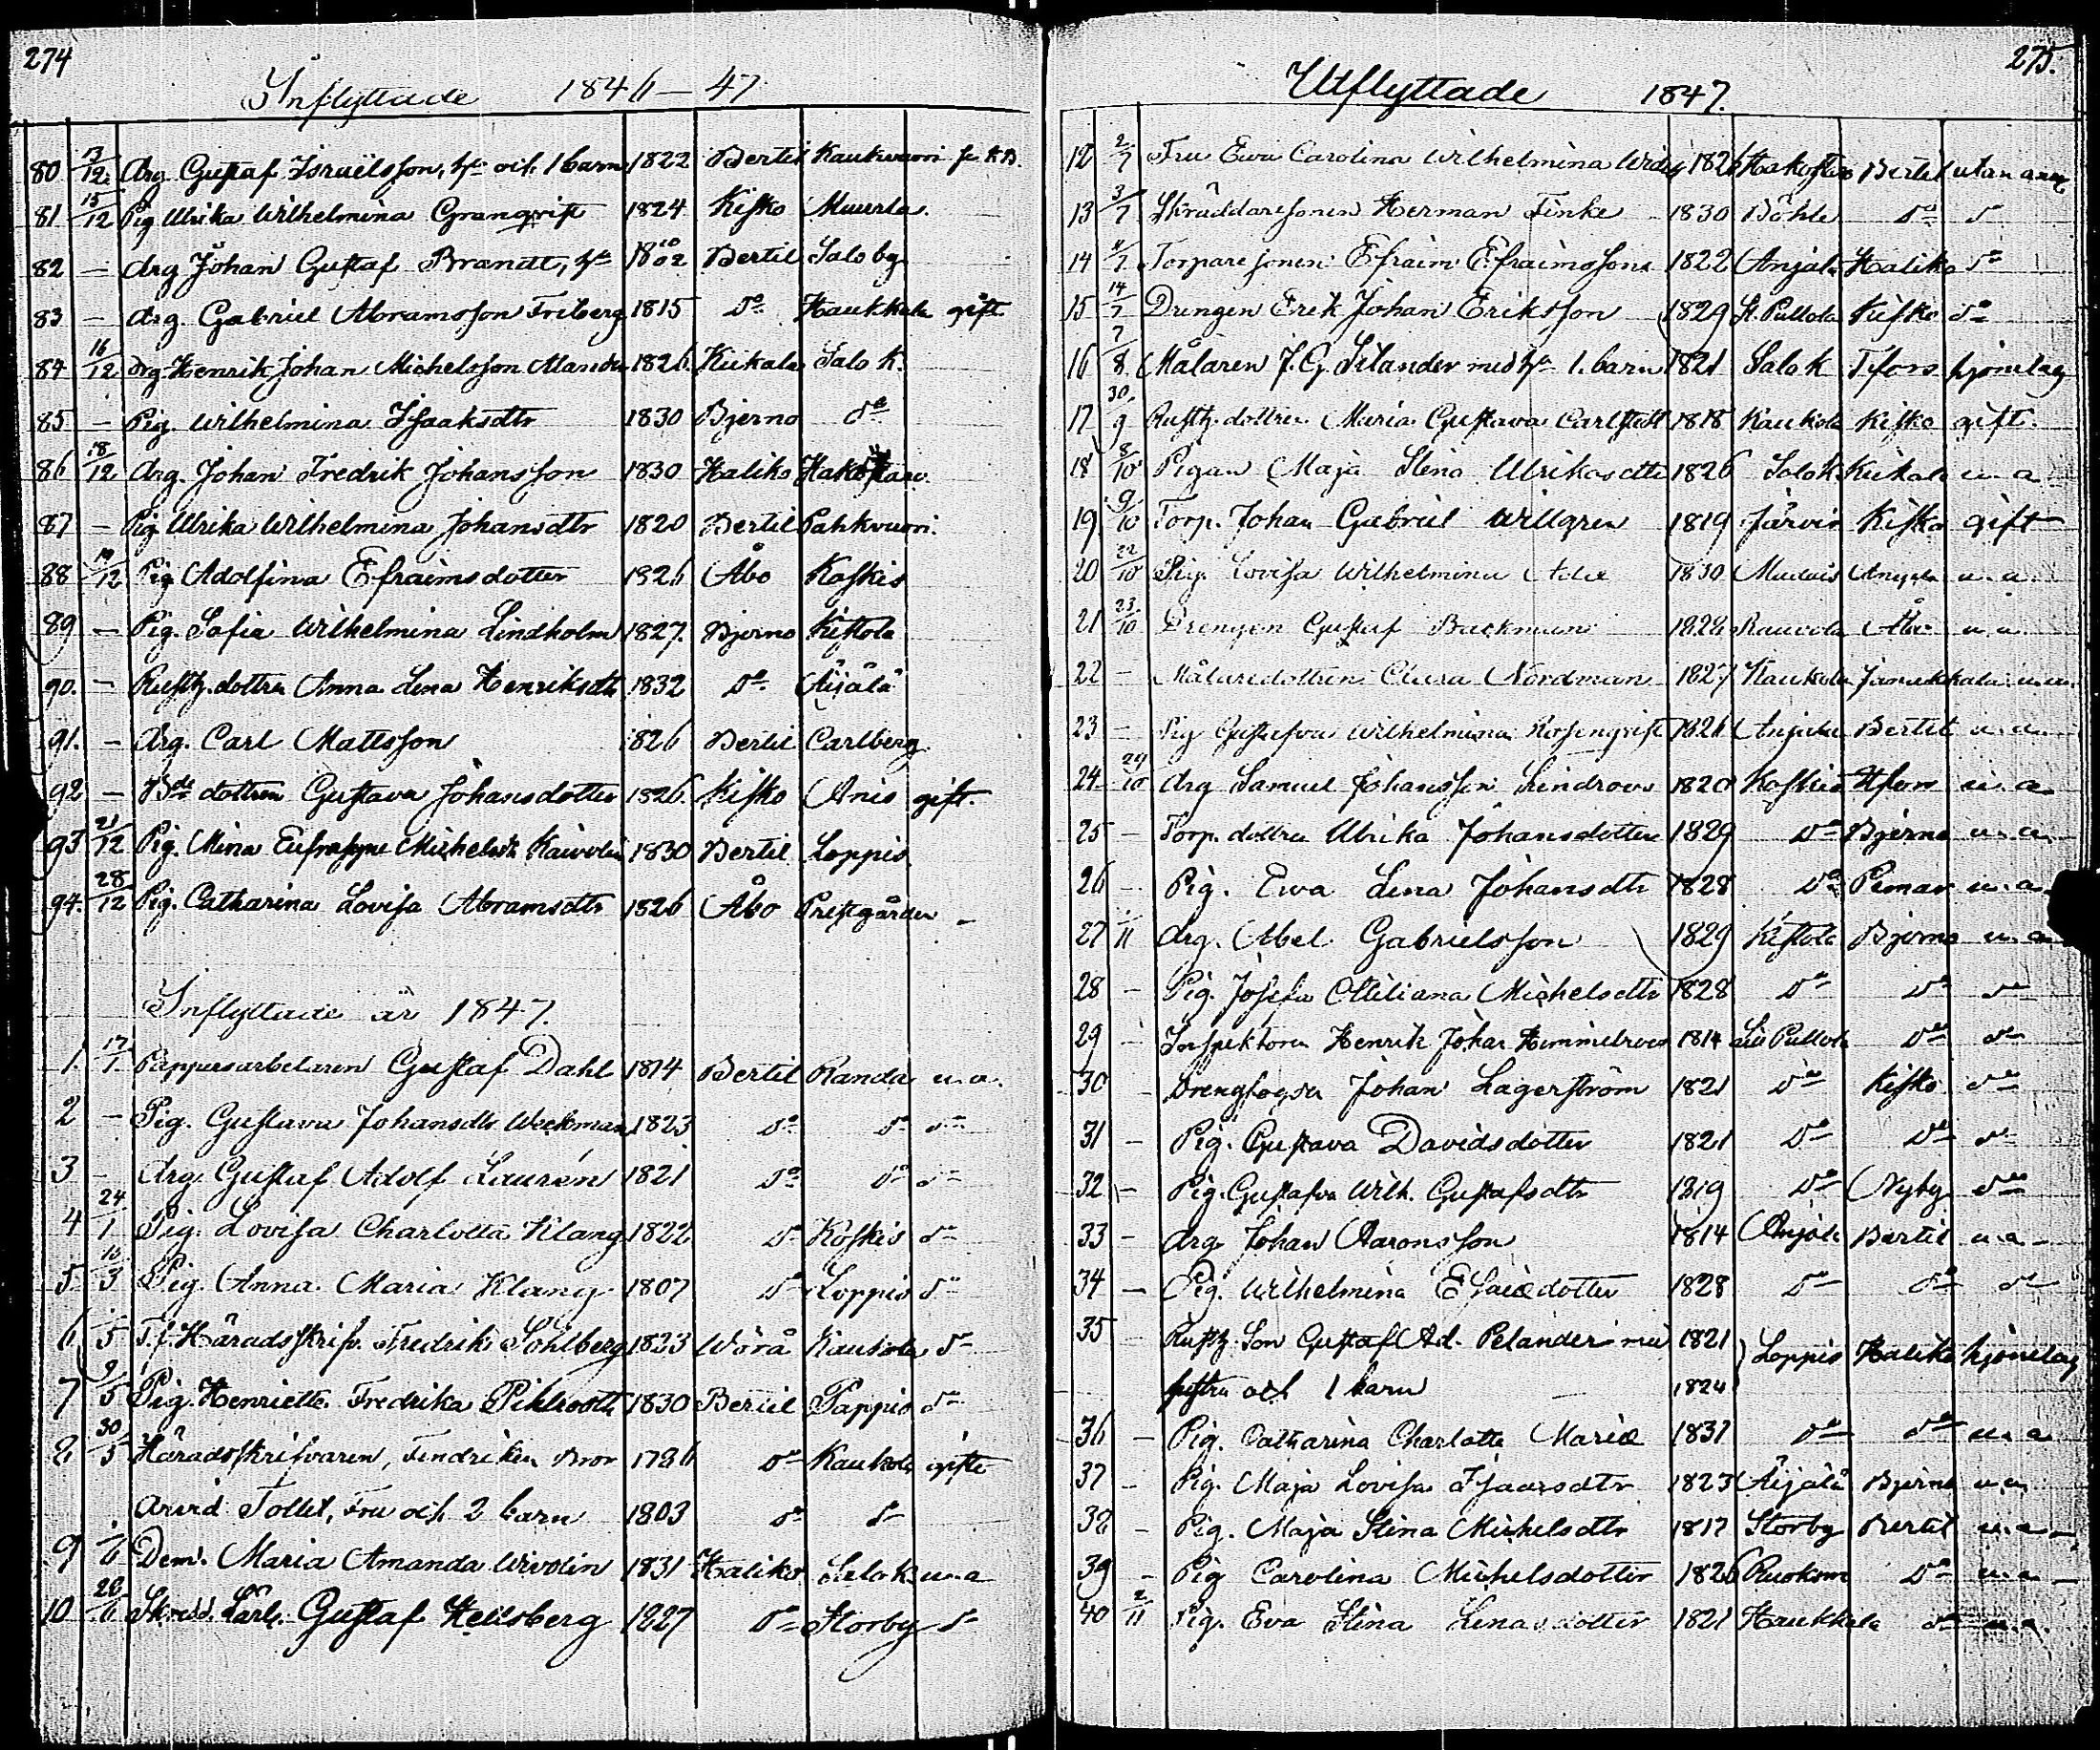 274
Inflyttade 1846–47
80 13/12 Drg Gustaf Israëlsson, h och 1 barn 1822 Bertil Kaukvuori
81 15/12 Pig Ulrika Wilhelmina Granqvist 1824 Kisko Muurla
82 – Drg Johan Gustaf Brandt, h 1802 Bertil Salo by
83 – Drg. Gabriel Abramsson Friberg 1815 Do Haukkala gift
84 16/12 Drg Henrik Johan Michelsson Alander 1826 Kiikala Salo k.
85 – Pig. Wilhelmina Isaaksdtr 1830 Bjerno do
86 18/12 Drg. Johan Fredrik Johansson 1830 Haliko Hakostaro
87 – Pig Ulrika Wilhelmina Johansdtr 1820 Bertil Pahkvuori.
88 19/12 Pig Adolfina Efraimsdotter 1826 Åbo Koskis
89 – Pig. Sofia Wilhelmina Lindholm 1827. Bjerno Kistola
90. – Rusth. dottren Anna Lena Henriksdtr 1832 Do Äijälä
91. – Drg. Carl Mattsson 1826 Bertil Carlberg
92 – dottren Gustava Johansdotter 1826. Kisko Anis gift.
93 21/12 Pig. Mina Michelsdtr 1830 Bertil Loppis
94. 28/12 Pig. Catharina Lovisa Abramsdtr 1826 Åbo Prestgården –
Inflyttade år 1847.
1. 17/1 Pappersarbetaren Gustaf Dahl 1814 Bertil Randa u.a.
2 – Pig. Gustava Johansdtr Weckman 1823 do do do
3 – Drg Gustaf Adolf Laurén 1821 do do do
4 24/1 Pig. Lovisa Charlotta Klang 1822 do Koskis do
5 16/3 Pig. Anna Maria Klang 1807 do Loppis do
6 /5 T.f. Häradsskrifv. Fredrik Sohlberg 1823 Wörå Kaukola do
7 9/5 Pig. Henrietta Fredrika 1830 Bertil Pappis do
8 30/5 Häradsskrifvaren, Bror 1796 do Kaukola gifte
Arvid Tollet, Fru och 2 barn 1803 do do
9 /6 Dem. Maria Amanda Wivolin 1831 Haliko Salo k u.a
10 28/6 Skredd. Lärl. Gustaf Heilsberg 1827 do Storby do
275.
Utflyttade 1847.
12 2/7 Fru Ewa Carolina Wilhelmina 1826 Hakostaro Bertil utan anm
13 3/7 Skräddaresonen Herman Finke 1830 Böhle do do
14 4/7 Torparesonen Efraim Efraimsson 1822 Anjala Haliko do
15 14/7 Drengen Erik Johan Eriksson 1829 St. Pullola Kisko do
16 7/8 Målaren J. G. Silander med h 1. barn 1821 Salo k T.fors hjonelag
17 30/9 Rusth. dottren Maria Gustava Carlstedt 1818 Kaukola Kisko gift.
18 8/10 Pigan Maja Stina Ulrikasdtr 1826 Salo k Kiikala u. a.
19. 9/10 Torp. Johan Gabriel Willgren 1819 Järvis Kisko gift
20 22/10 Pig. Lovisa Wilhelmina 1830 u. a.
21 23/10 Drengen Gustaf Backman 1828 Rauvola Åbo u. a.
22 – Målaredottren Clara Nordman 1827 Kaukola Janakkala u.a.
23 – Pig Gustafva Wilhelmina Rosenqvist 1826 Anjala Bertil u. a.
24 29/10 Drg Samuel Johansson Lindroos 1820 Koskis u. a.
25 – Torp. dottren Ulrika Johansdotter 1829 do Bjerno u. a.
26 – Pig. Ewa Lena Johansdtr 1828 do Pemar u. a.
27 1/11 Drg. Abel Gabrielsson 1829 Kistola Bjerno u. a.
28 – Pig. Josefa Ottiliana Michelsdtr 1828 do do do
29 – Inspektoren Henrik Johan Himmelroos 1814 Lill Pullola do do
30 – Drengfogden Johan Lagerström 1821 do Kisko do
31 – Pig. Gustava Davidsdotter 1821 do do do
32 – Pig. Gustafva Wilh. Gustafsdtr 1819 do Nyby do
33 – Drg Johan Aaronsson 1814 Anjala Bertil u. a.
34 – Pig. Wilhelmina Esaiedotter 1828 do do do
35 Rusth. Son Gustaf Ad. Pelander med 1821 Loppis Haliko hjonelag
hustru och 1 barn 1824
36 – Pig. Catharina Charlotta Mariæ 1831 do do u. a
37 – Pig. Maja Lovisa Isaacsdtr 1823 Äijälä Bjerno u.a.
38 – Pig. Maja Stina Michelsdtr 1817 Storby Bertil u.a.
39 – Pig Carolina Michelsdotter 1826 do u.a.
40 2/11 Pig. Eva Stina Lenasdotter 1821 Haukkala do u.a.